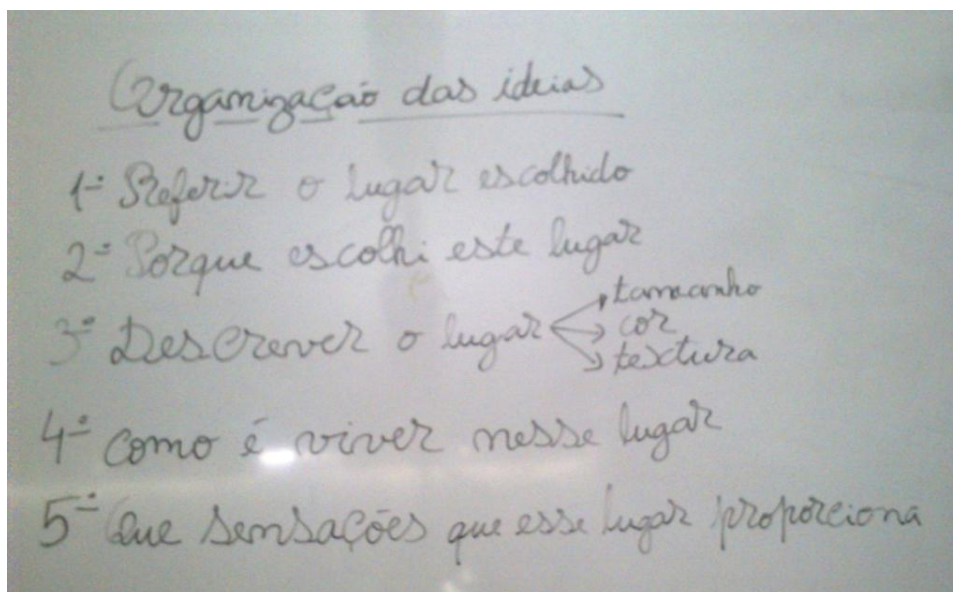 Organização das ideias
1º Referir o lugar escolhido
2º Porque escolhi este lugar
3º Descrever o lugar
tamanho
cor
textura
4º como é viver nesse lugar
5º Que sensações que esse lugar proporciona